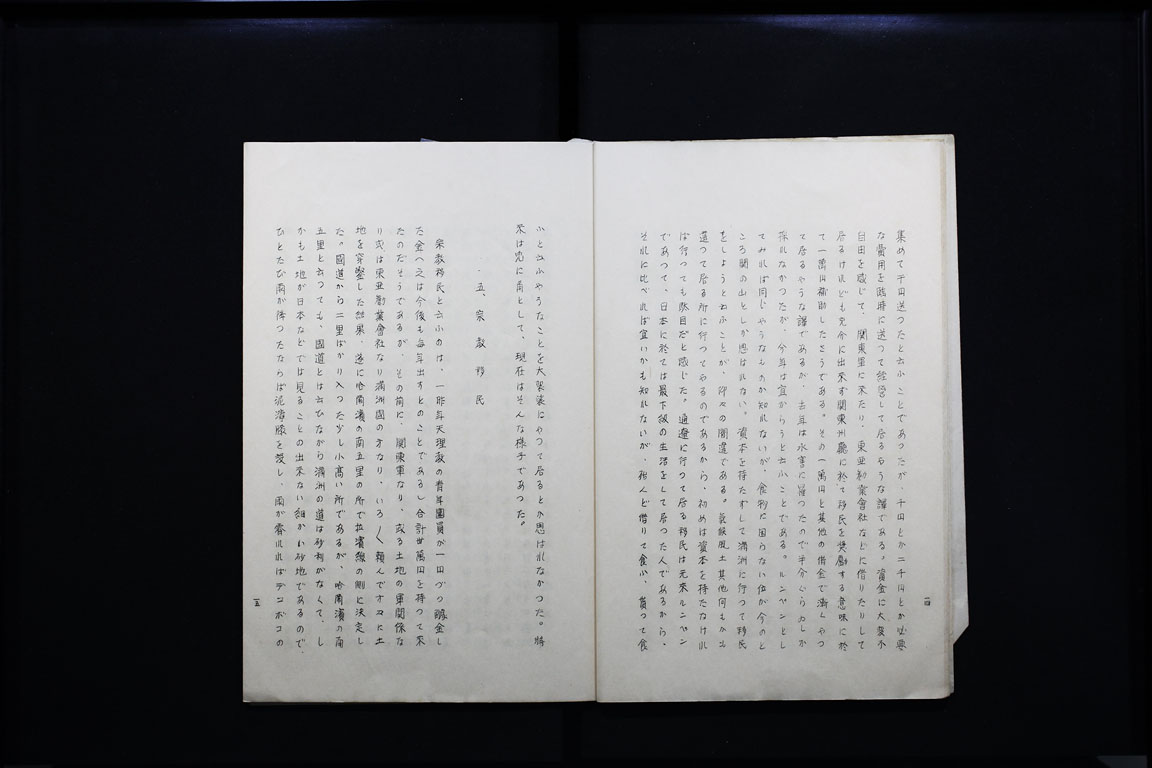 集めて千円送つたと云ふことであつたが、千円とか二千円とか必要
な費用を臨時に送つて経営して居るやうな譯である。資金に大變不
自由を感じて、関東軍に来たり、東亜勧業會社などに借りたりして
居るけれども充分に出来ず関東州廳に於て移民を奨勵する意味に於
て一萬円補助したさうである。その一萬円と其他の借金で漸くやつ
て居るやうな譯であるが、去年は水害に罹つたので半分ぐらゐしか
採れなかつたが、今年は宜からうと云ふことである。ルンペンとし
てみれば同じやうなものか知れないが、食物に困らない位が今のと
ころ関の山としか思はれない。資本を持たずして満洲に行つて移民
をしようと云ふことが、抑々の間違である。気候風土其他何もかも
違つて居る所に行つてやるのであるから、初めは資本を持たなけれ
ば行つても駄目だと感じた。通遼に行つて居る移民は元来ルンペン
であつて、日本に於ては最下級の生活をして居つた人であるから、
それに比べれば宜いかも知れないが、殆んど借りて食ひ、貰つて食
一四
ふと云ふやうなことを大袈裟にやつて居るとか思はれなかつた。将
来は兎に角として、現在はそんな様子であつた。
五、宗教移民
宗教移民と云ふのは、一昨年天理教の青年團員が一円づつ醵金し
た金(之は今後も毎年出すとのことである)合計廿萬円を持つて来
たのださうであるが、その前に、関東軍なり、或る土地の軍関係な
り或は東亜勧業會社なり満洲國の方なり、いろ〱頼んで方々に土
地を穿鑿した結果、遂に哈爾濱の南五里の所で拉濱線の側に決定し
た。國道から二里ばかり入つた少し小高い所であるが、哈爾濱の南
五里と云つても、國道とは云ひながら満洲の道は砂利がなくて、し
かも土地が日本などでは見ることの出来ない細かい砂地であるので、
ひとたび雨が降つたならば泥濘膝を没し、雨が霽れればデコボコの
一五